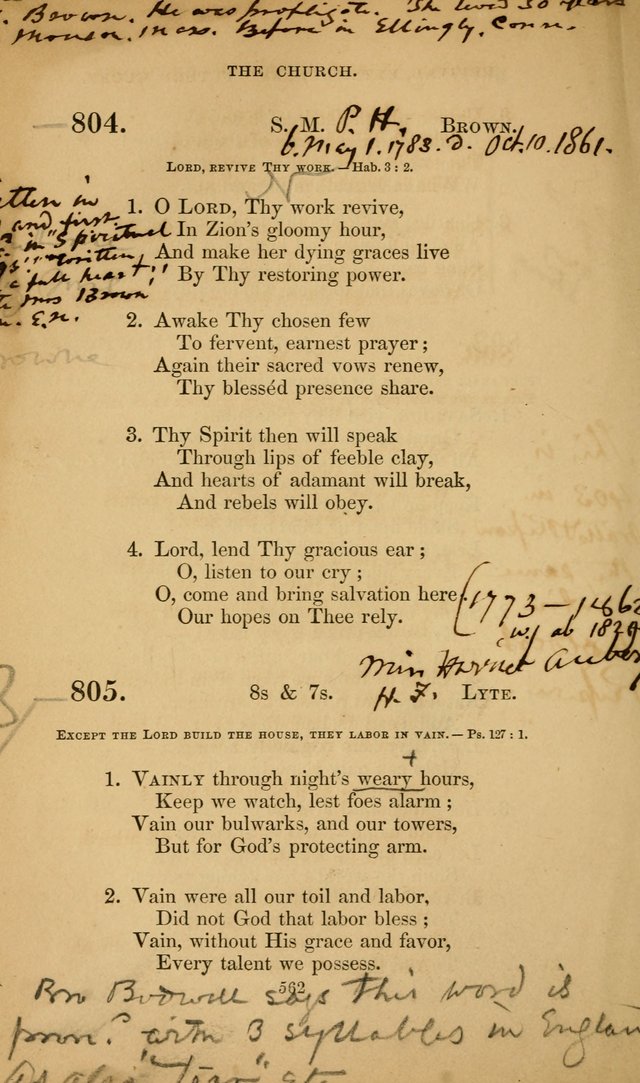 . Brown. He was profligate. She lived 30 years
Monson, Mass. Before in Ellingly, Conn.
THE CHURCH.
804. S. M. P. H. BROWN.
b. May 1. 1783. d. Oct. 10. 1861.
LORD, REVIVE THY WORK.—Hab. 3 : 2.
itten in
and first
in "Spiritual
gs" "written
a full heart,"
Mrs Brown
n. E.H.
rowne
1. O LORD, Thy work revive,
In Zion's gloomy hour,
And make her dying graces live
By Thy restoring power.
2. Awake Thy chosen few
To fervent, earnest prayer;
Again their sacred vows renew,
Thy blesséd presence share.
3. Thy Spirit then will speak
Through lips of feeble clay,
And hearts of adamant will break,
And rebels will obey.
4. Lord, lend Thy gracious ear;
O, listen to our cry;
O, come and bring salvation here
Our hopes on Thee rely.
(1773–1862
w. ab 1829
Miss Harriet Auber
805. 8s & 7s. H. F. LYTE.
EXCEPT THE LORD BUILD THE HOUSE, THEY LABOR IN VAIN.—Ps. 127 : 1.
+
1. VAINLY through night's weary hours,
Keep we watch, lest foes alarm;
Vain our bulwarks, and our towers,
But for God's protecting arm.
2. Vain were all our toil and labor,
Did not God that labor bless;
Vain, without His grace and favor,
Every talent we possess.
562
Bro Bodwell says this word is
pron.d with 3 syllables in Englan
as also